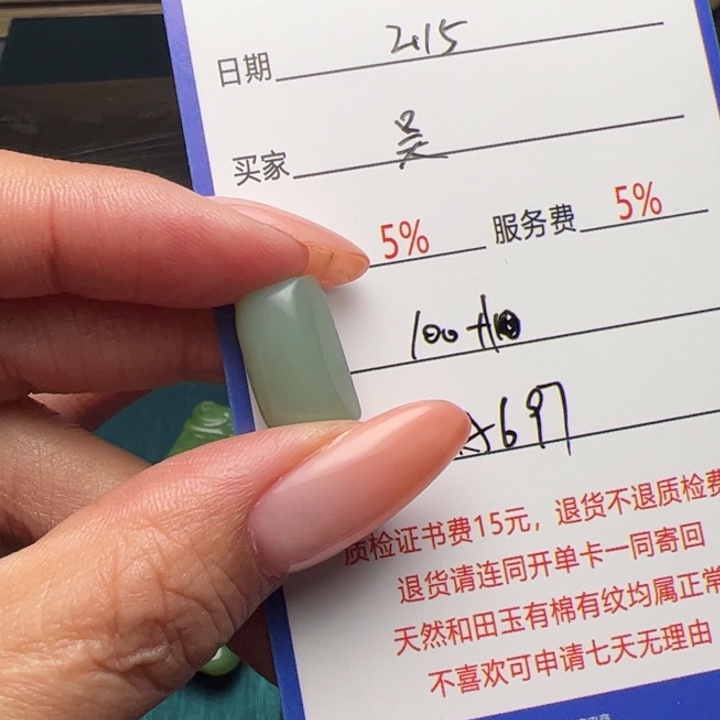 日期 2.15
买家 吴
5% 服务费 5%
100+10
A697
质检证书费15元，退货不退质检费
退货请连同开单卡一同寄回
天然和田玉有棉有纹均属正常
不喜欢可申请七天无理由